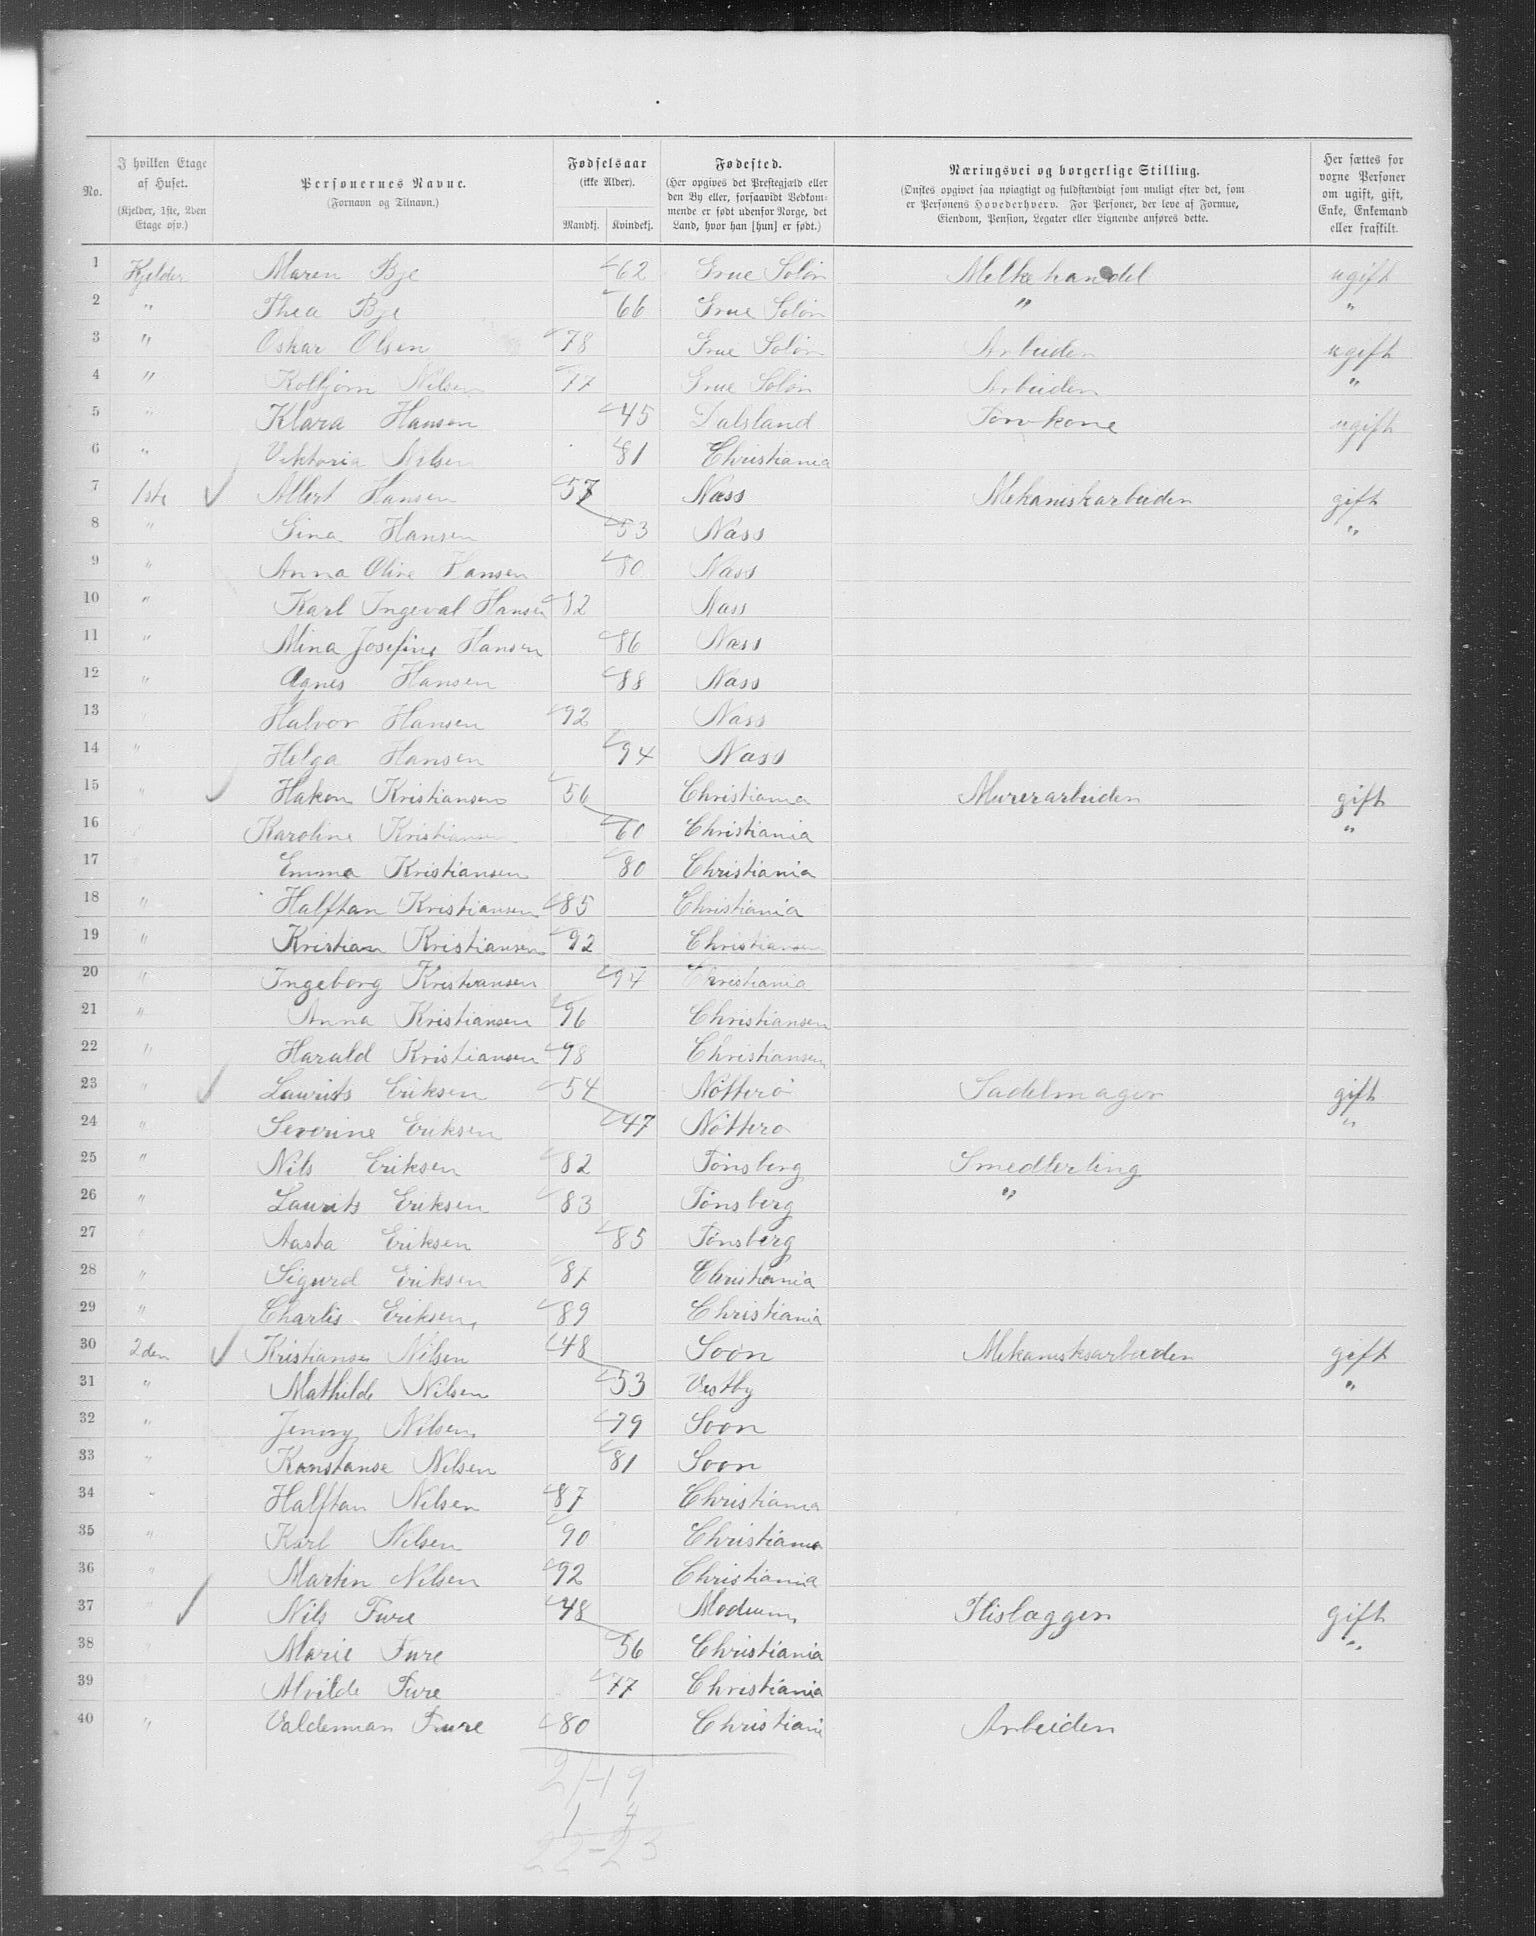 No.
I hvilken Etage af Huset.
(Kjelder, 1ste, 2den Etage osv.)
Personernes Navne.
(Fornavn og Tilnavn.)
Fødselsaar
(ikke Alder).
Mandkj. Kvindekj.
Fødested.
(Her opgives det Prestegjæld eller
den By eller, forsaavidt Vedkom-
mende er født udenfor Norge, det
Land, hvor han [hun] er født.)
Næringsvei og borgerlige Stilling.
(Ønskes opgivet saa nøiagtigt og fuldstændigt som muligt efter det, som
er Personens Hovederhverv. For Personer, der leve af Formue,
Eiendom, Pension, Legater eller Lignende anføres dette.
Her sættes for
voxne Personer
om ugift, gift,
Enke, Enkemand
eller fraskilt.
1 Kjelder Maren Bje 62 Grue Solør Melkehandel ugift
2 " Thea Bje 66 Grue Solør " "
3 " Oskar Olsen 78 Grue Solør Arbeider ugift
4 " Kolbjørn Nilsen 77 Grue Solør Arbeider "
5 " Klara Hansen 45 Dalsland Torvkone ugift
6 " Viktoria Nilsen 81 Christiania
7 1ste Albert Hansen 57 Næss Mekaniskarbeider gift
8 " Gina Hansen 53 Næss "
9 " Anna Oline Hansen 80 Næss
10 " Karl Ingeval Hansen 82 Næss
11 " Mina Josefine Hansen 86 Næss
12 " Agnes Hansen 88 Næss
13 Halvor Hansen 92 Næss
14 " Helga Hansen 94 Næss
15 " Hakon Kristiansen 56 Christiania Murerarbeider gift
16 Karoline Kristiansen 60 Christiania "
17 Emma Kristiansen 80 Christiania
18 " Halftan Kristiansen 85 Christiania
19 " Kristian Kristiansen 92 Christiansen
20 " Ingeborg Kristiansen 94 Christiania
21 " Anna Kristiansen 96 Christiansen
22 " Harald Kristiansen 98 Christiansen
23 " Laurits Eriksen 54 Nøtterø Sadelmager gift
24 " Severine Eriksen 47 Nøttero "
25 " Nils Eriksen 82 Tønsberg Smedlerling
26 " Laurits Eriksen 83 Tønsberg "
27 " Aasta Eriksen 85 Tønsberg
28 " Sigurd Eriksen 87 Christiania
29 " Charlis Eriksen 89 Christiania
30 2den Kristianse Nilsen 48 Soon Mekanisksarbeider gift
31 " Mathilde Nilsen 53 Vestby "
32 " Jenny Nilsen 79 Soon
33 " Konstanse Nilsen 81 Soon
34 " Halftan Nilsen 87 Christiania
35 " Karl Nilsen 90 Christiania
36 " Martin Nilsen 92 Christiania
37 " Nils Fure 48 Modum Flislægger gift
38 " Marie Fure 56 Christiania "
39 " Alvilde Fure 77 Christiania
40 " Valdemar Fure 80 Christiani Arbeider
21-19
1 4
22-23